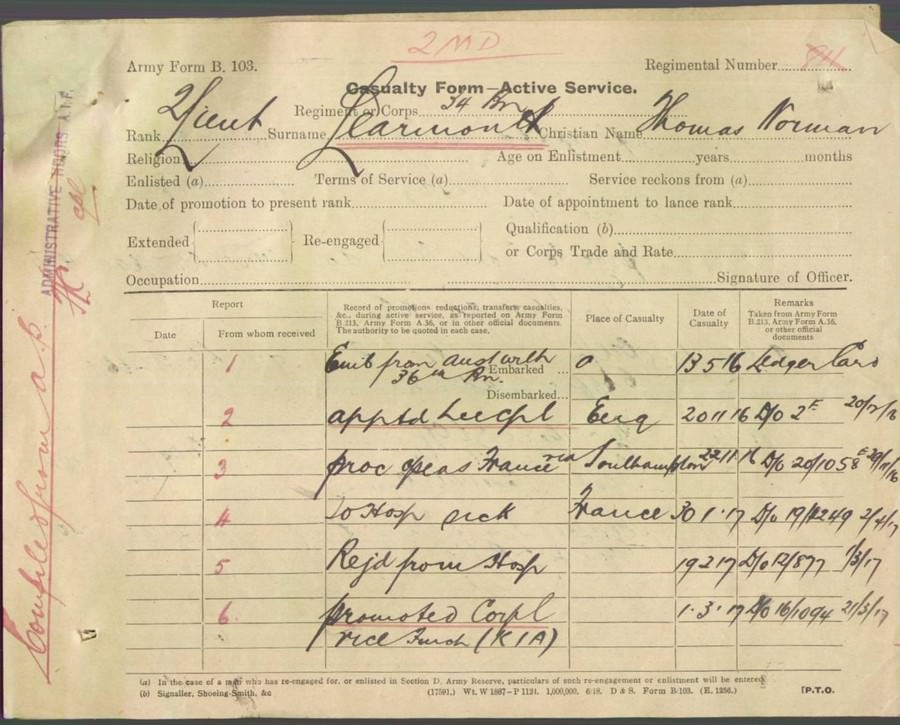 2MD
Army Form B. 103.
Regimental Number
Casualty Form—Active Service.
Regiment or Corps 34 Bn
Rank 2/Lieut Surname Learmonth Christian Name Thomas Norman
Religion Age on Enlistment years months
Enlisted (a) Terms of Service (a) Service reckons from (a)
Date of promotion to present rank Date of appointment to lance rank
Extended Re-engaged Qualification (b)
or Corps Trade and Rate
Occupation Signature of Officer.
ADMINISTRATIVE HDQRS. A.I.F.
Report
Date From whom received
Record of promotions, reductions, transfers, casualties, &c., during active service, as reported on Army Form B.213, Army Form A.36, or in other official documents. The authority to be quoted in each case.
Place of Casualty
Date of Casualty
Remarks
Taken from Army Form B.213, Army Form A.36, or other official documents
1 Emb from Aust with Embarked 13 5 16 Ledger Card
36th Bn.
Disembarked
2 apptd L/Cpl Eng 20 11 16
3 proc o/seas France via Southampton 22 11 16
4 To Hosp sick France 30 1 17
5 Rejd from Hosp 19 2 17 D/o 12/877 1/3/17
6 promoted Corpl 1 3 17 D/o 16/1094 21/3/17
vice (KIA)
(a) In the case of a man who has re-engaged for, or enlisted in Section D, Army Reserve, particulars of such re-engagement or enlistment will be entered.
(b) Signaller, Shoeing-Smith, &c
(17591.) Wt. W 1887—P 1124. 1,000,000. 6/18. D & S. Form B/103. (E. 1256.)
[P.T.O.